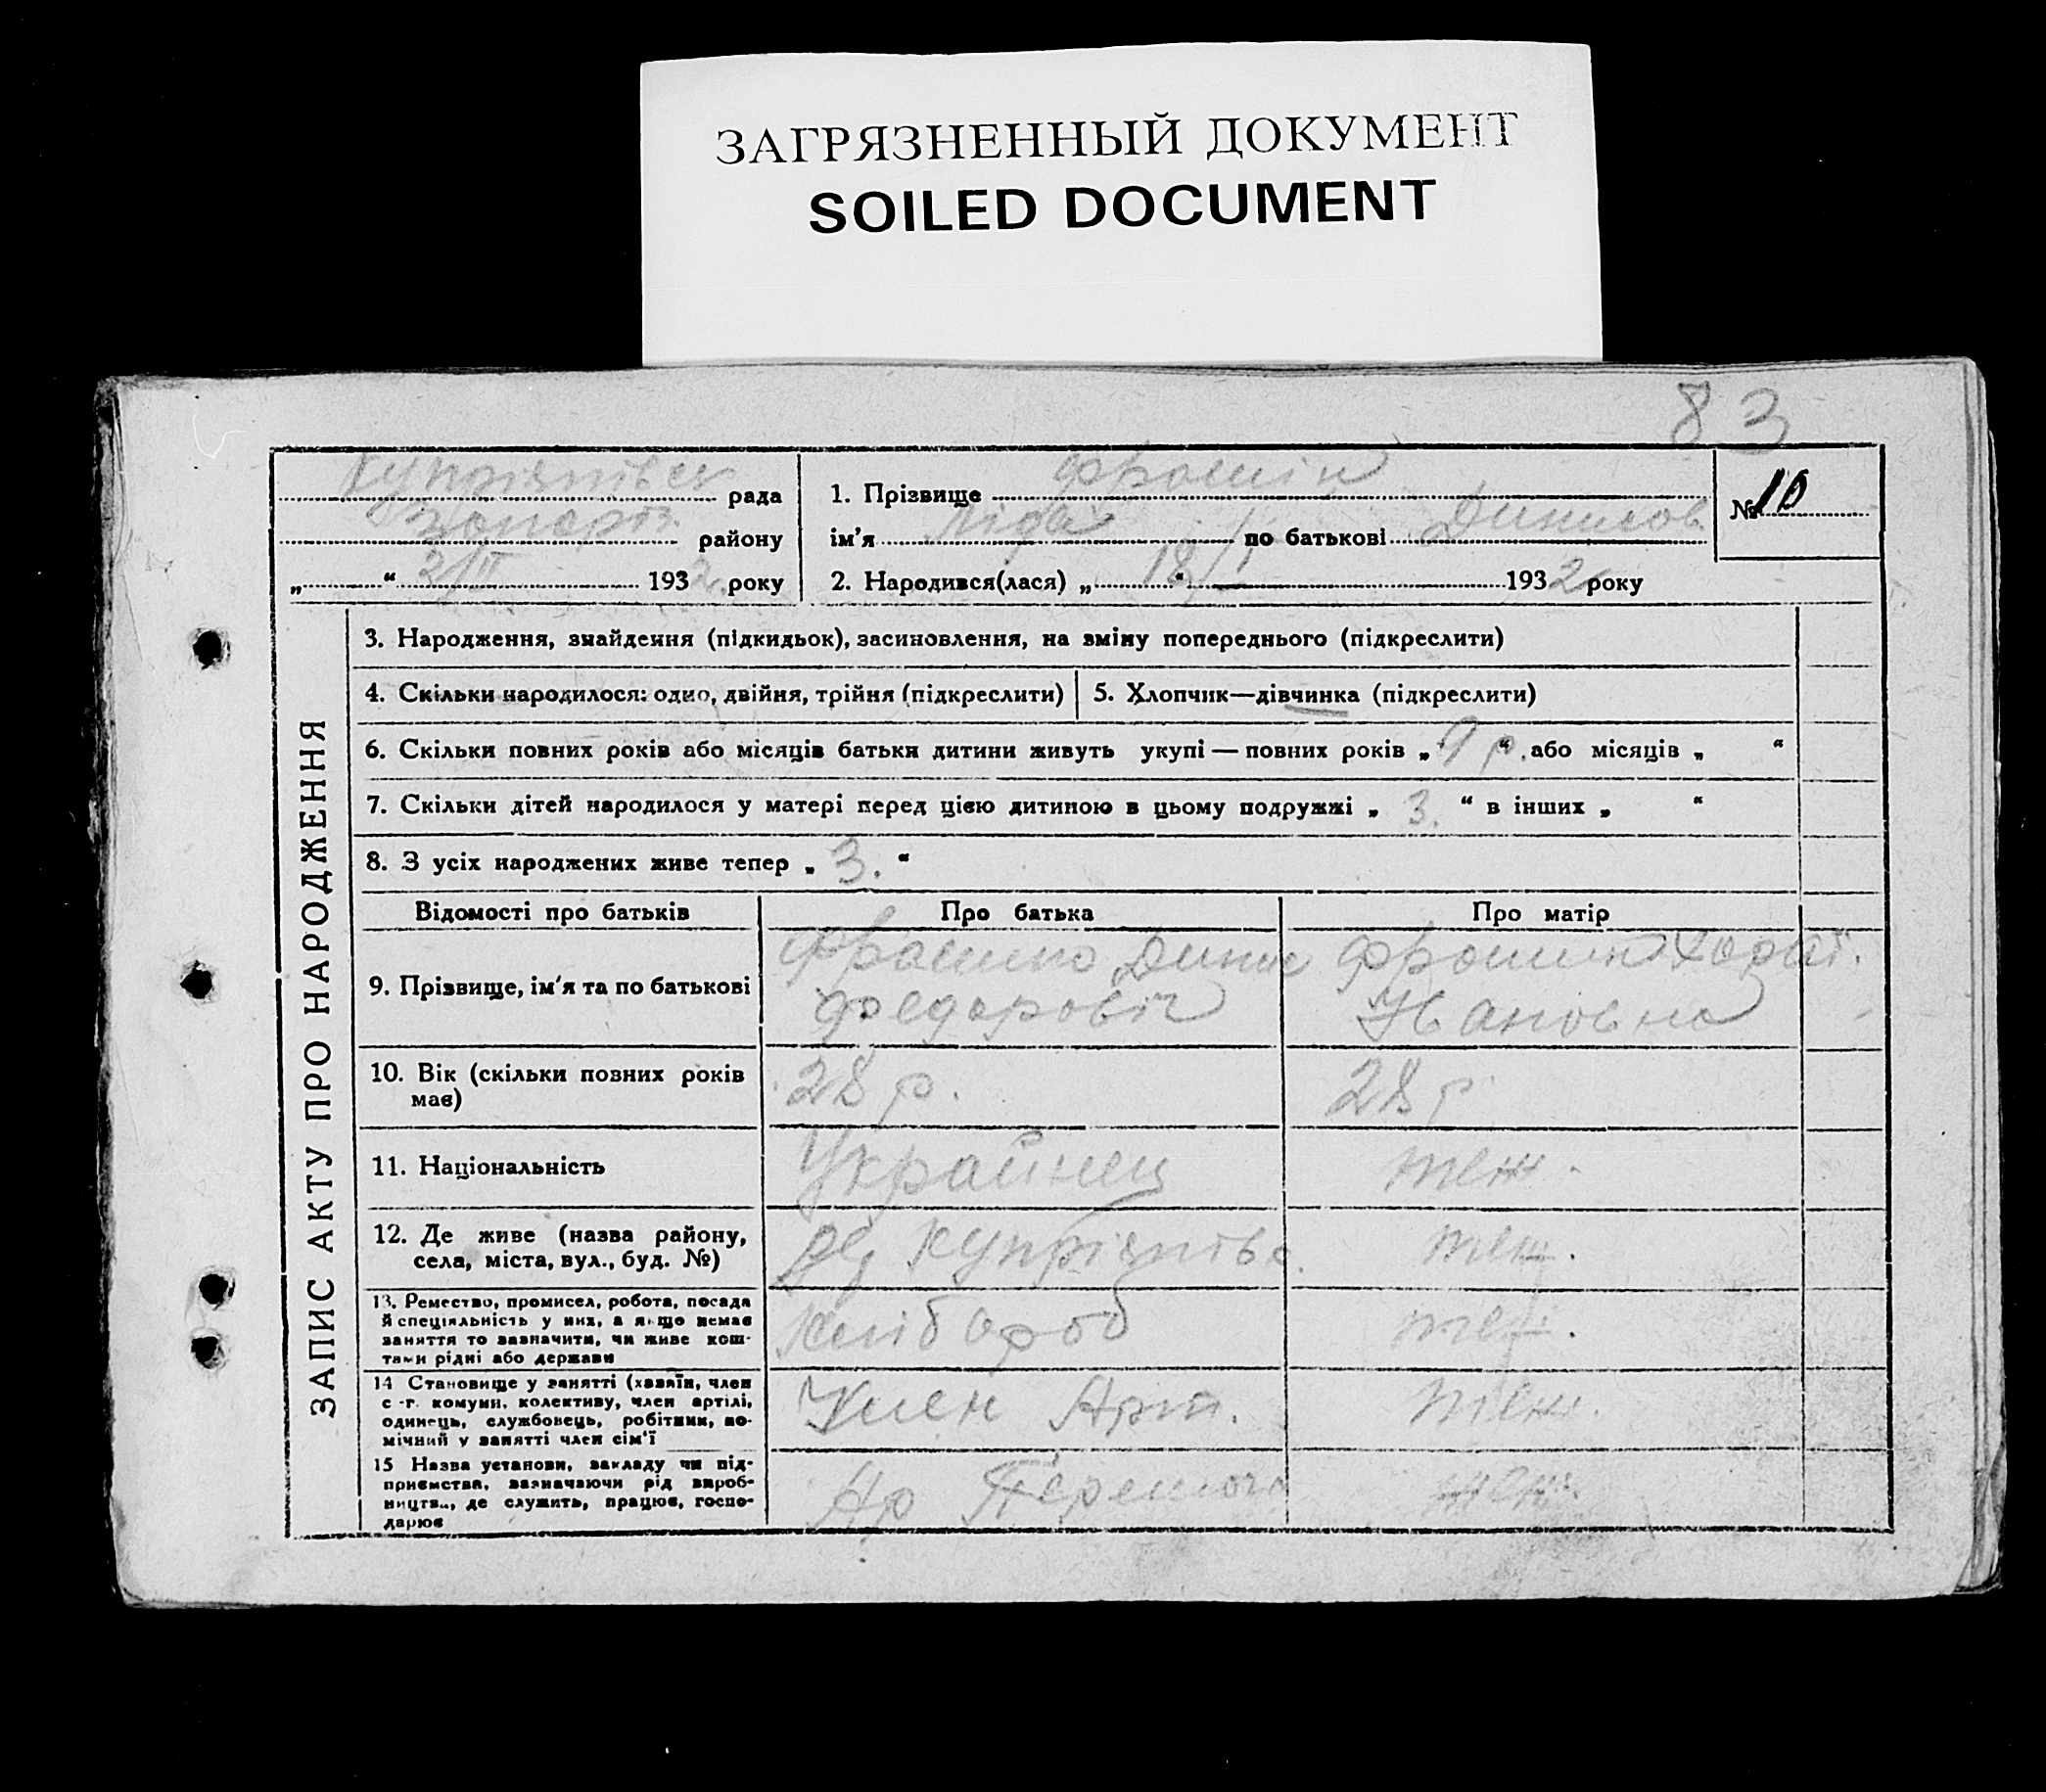 ЗАГРЯЗНЕННЫЙ ДОКУМЕНТ
SOILED DOCUMENT
83
рада
району
„ “ 2/II 1932 року
1. Прізвище
ім'я Ліда по батькові
2. Народився(лася) „ 18/I “ 1932 року
№ 10
ЗАПИС АКТУ ПРО НАРОДЖЕННЯ
3. Народження, знайдення (підкидьок), засиновлення, на зміну попереднього (підкреслити)
4. Скільки народилося: одно, двійня, трійня (підкреслити)
5. Хлопчик—дівчинка (підкреслити)
6. Скільки повних років або місяців батьки дитини живуть укупі — повних років „ 9 р. “ або місяців „ “
7. Скільки дітей народилося у матері перед цією дитиною в цьому подружжі „ 3. “ в інших „ “
8. З усіх народжених живе тепер „ 3. “
Відомості про батьків
Про батька
Про матір
9. Прізвище, ім'я та по батькові
Федоровіч
Ивановна
10. Вік (скільки повних років має)
28 р.
28 р
11. Національність
Украйнец
теж.
12. Де живе (назва району, села, міста, вул., буд. №)
теж.
13. Ремество, промисел, робота, посада й спеціяльність у них, а якщо немає заняття то зазначити, чи живе коштами рідні або держави
хлібороб
теж.
14 Становище у занятті (хазяїн, член с.-г. комуни, колективу, член артілі, одинець, службовець, робітник, помічний у занятті член сім'ї
Член Арт.
теж.
15 Назва установи, закладу чи підприємства, зазначаючи рід виробництва, де служить, працює, господарює
Ар Перемога
теж.